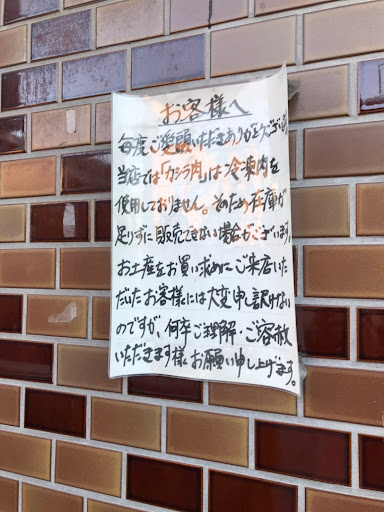 お客様へ
毎度ご愛顧いただきありがとうございます
当店では「カシラ肉」は冷凍肉を
使用しておりません。そのため在庫が
足りずに販売できない場合がございます。
お土産をお買い求めにご来店いた
だいたお客様には大変申し訳けない
のですが、何卒ご理解・ご容赦
いただきます様お願い申し上げます。